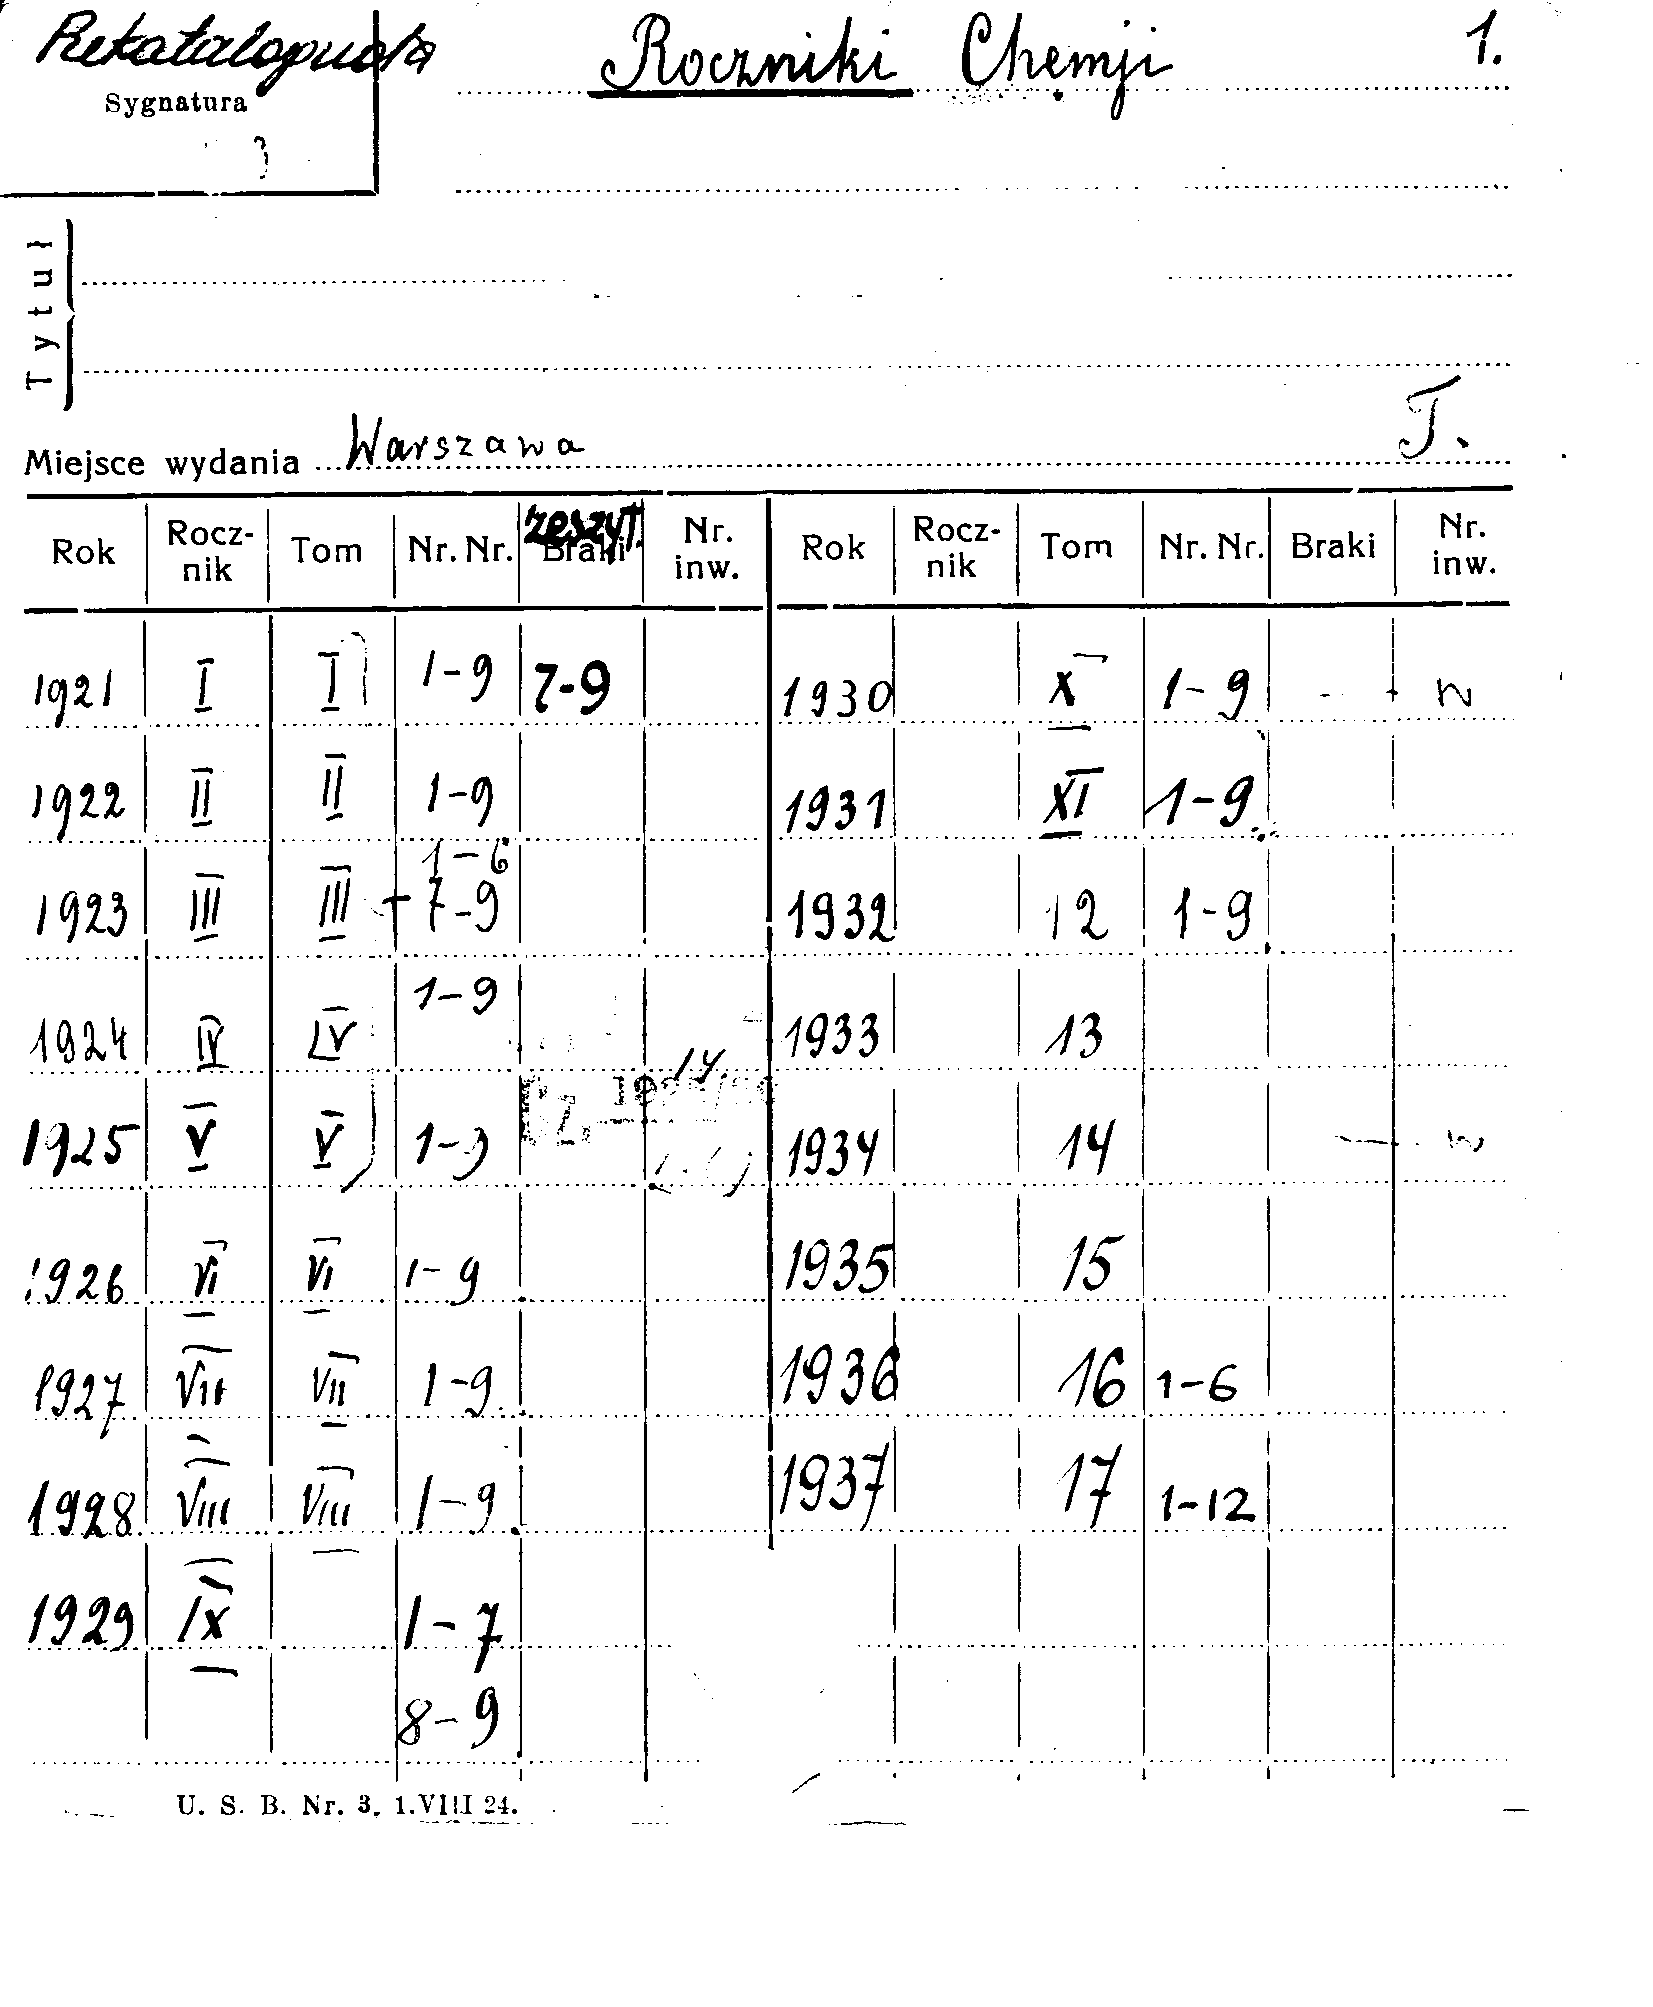 Roczniki Chemji 1.
Sygnatura
Tytuł
Miejsce wydania Warszawa T.
Rok Rocz-nik Tom Nr. Nr. zeszyt. Braki Nr. inw. Rok Rocz-nik Tom Nr. Nr. Braki Nr. inw.
1921 I I 1-9 7-9 1930 X 1-9
1922 II II 1-9 1931 XI 1-9
1-6
1923 III III + 7-9 1932 12 1-9
1924 IV IV 1-9 1933 13
1925 V V 1-9 1934 14
1926 VI VI 1-9 1935 15
1927 VII VII 1-9 1936 16 1-6
1928 VIII VIII 1-9 1937 17 1-12
1929 IX 1-7
8-9
U. S. B. Nr. 3. 1.VIII 24.